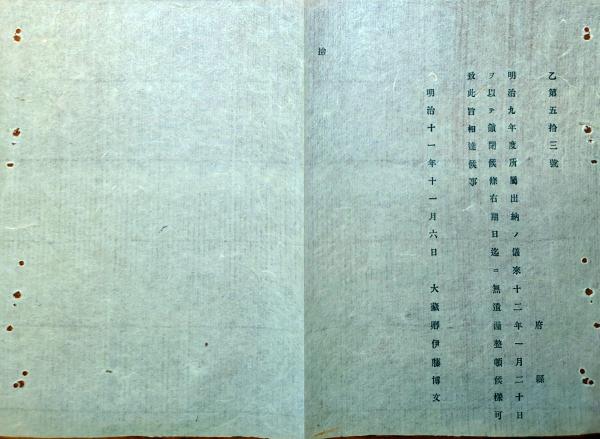 乙第五拾三號
府縣
明治九年度所屬出納ノ儀來十二年一月二十日
ヲ以テ鎖閉候條右期日迄ニ無遺漏整頓候樣可
致此旨相達候事
明治十一年十一月六日 大藏卿伊藤博文
拾